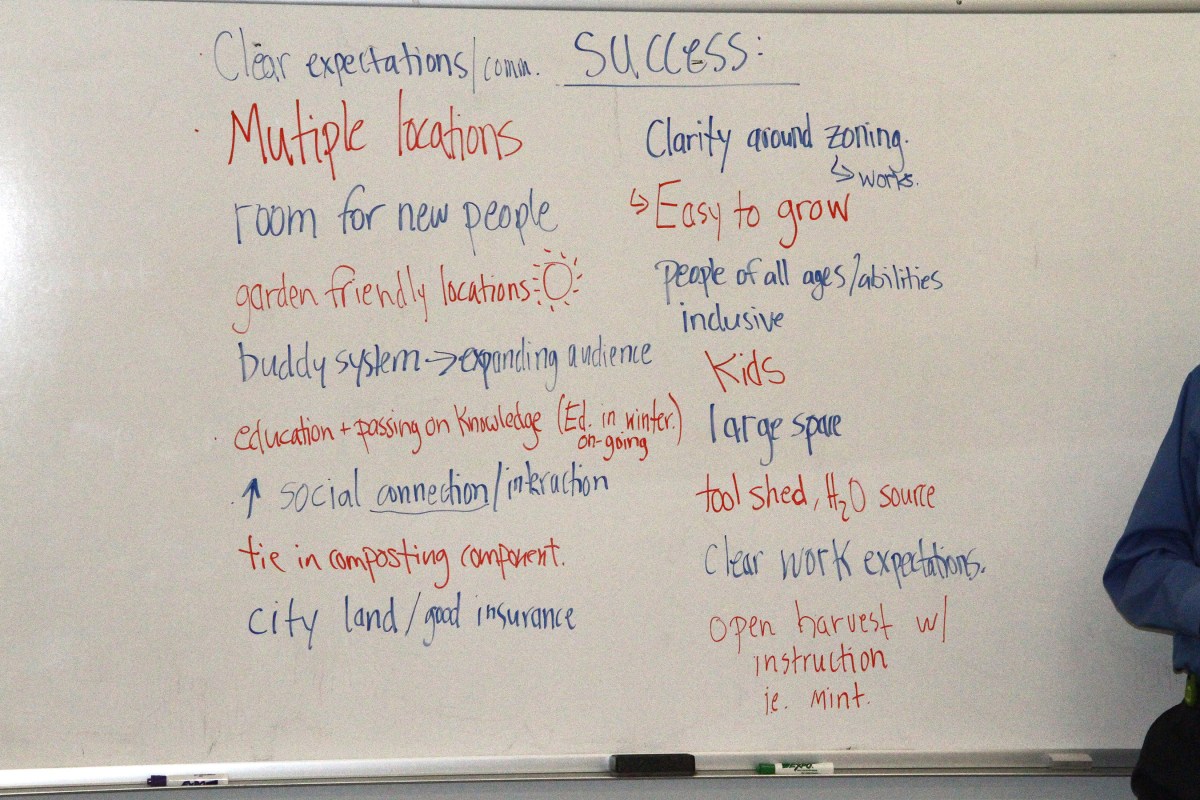 SUCCESS:
Clear expectations/comm.
Mutiple locations
room for new people
garden friendly locations
buddy system → expanding audience
education + passing on knowledge (Ed. in winter.)
on-going
↑ social connection/interaction
tie in composting component.
city land/good insurance
Clarity around zoning.
↳ works.
↳ Easy to grow
people of all ages/abilities
inclusive
Kids
large space
tool shed, H₂O source
Clear work expectations.
open harvest w/
instruction
ie. Mint.
EXPO